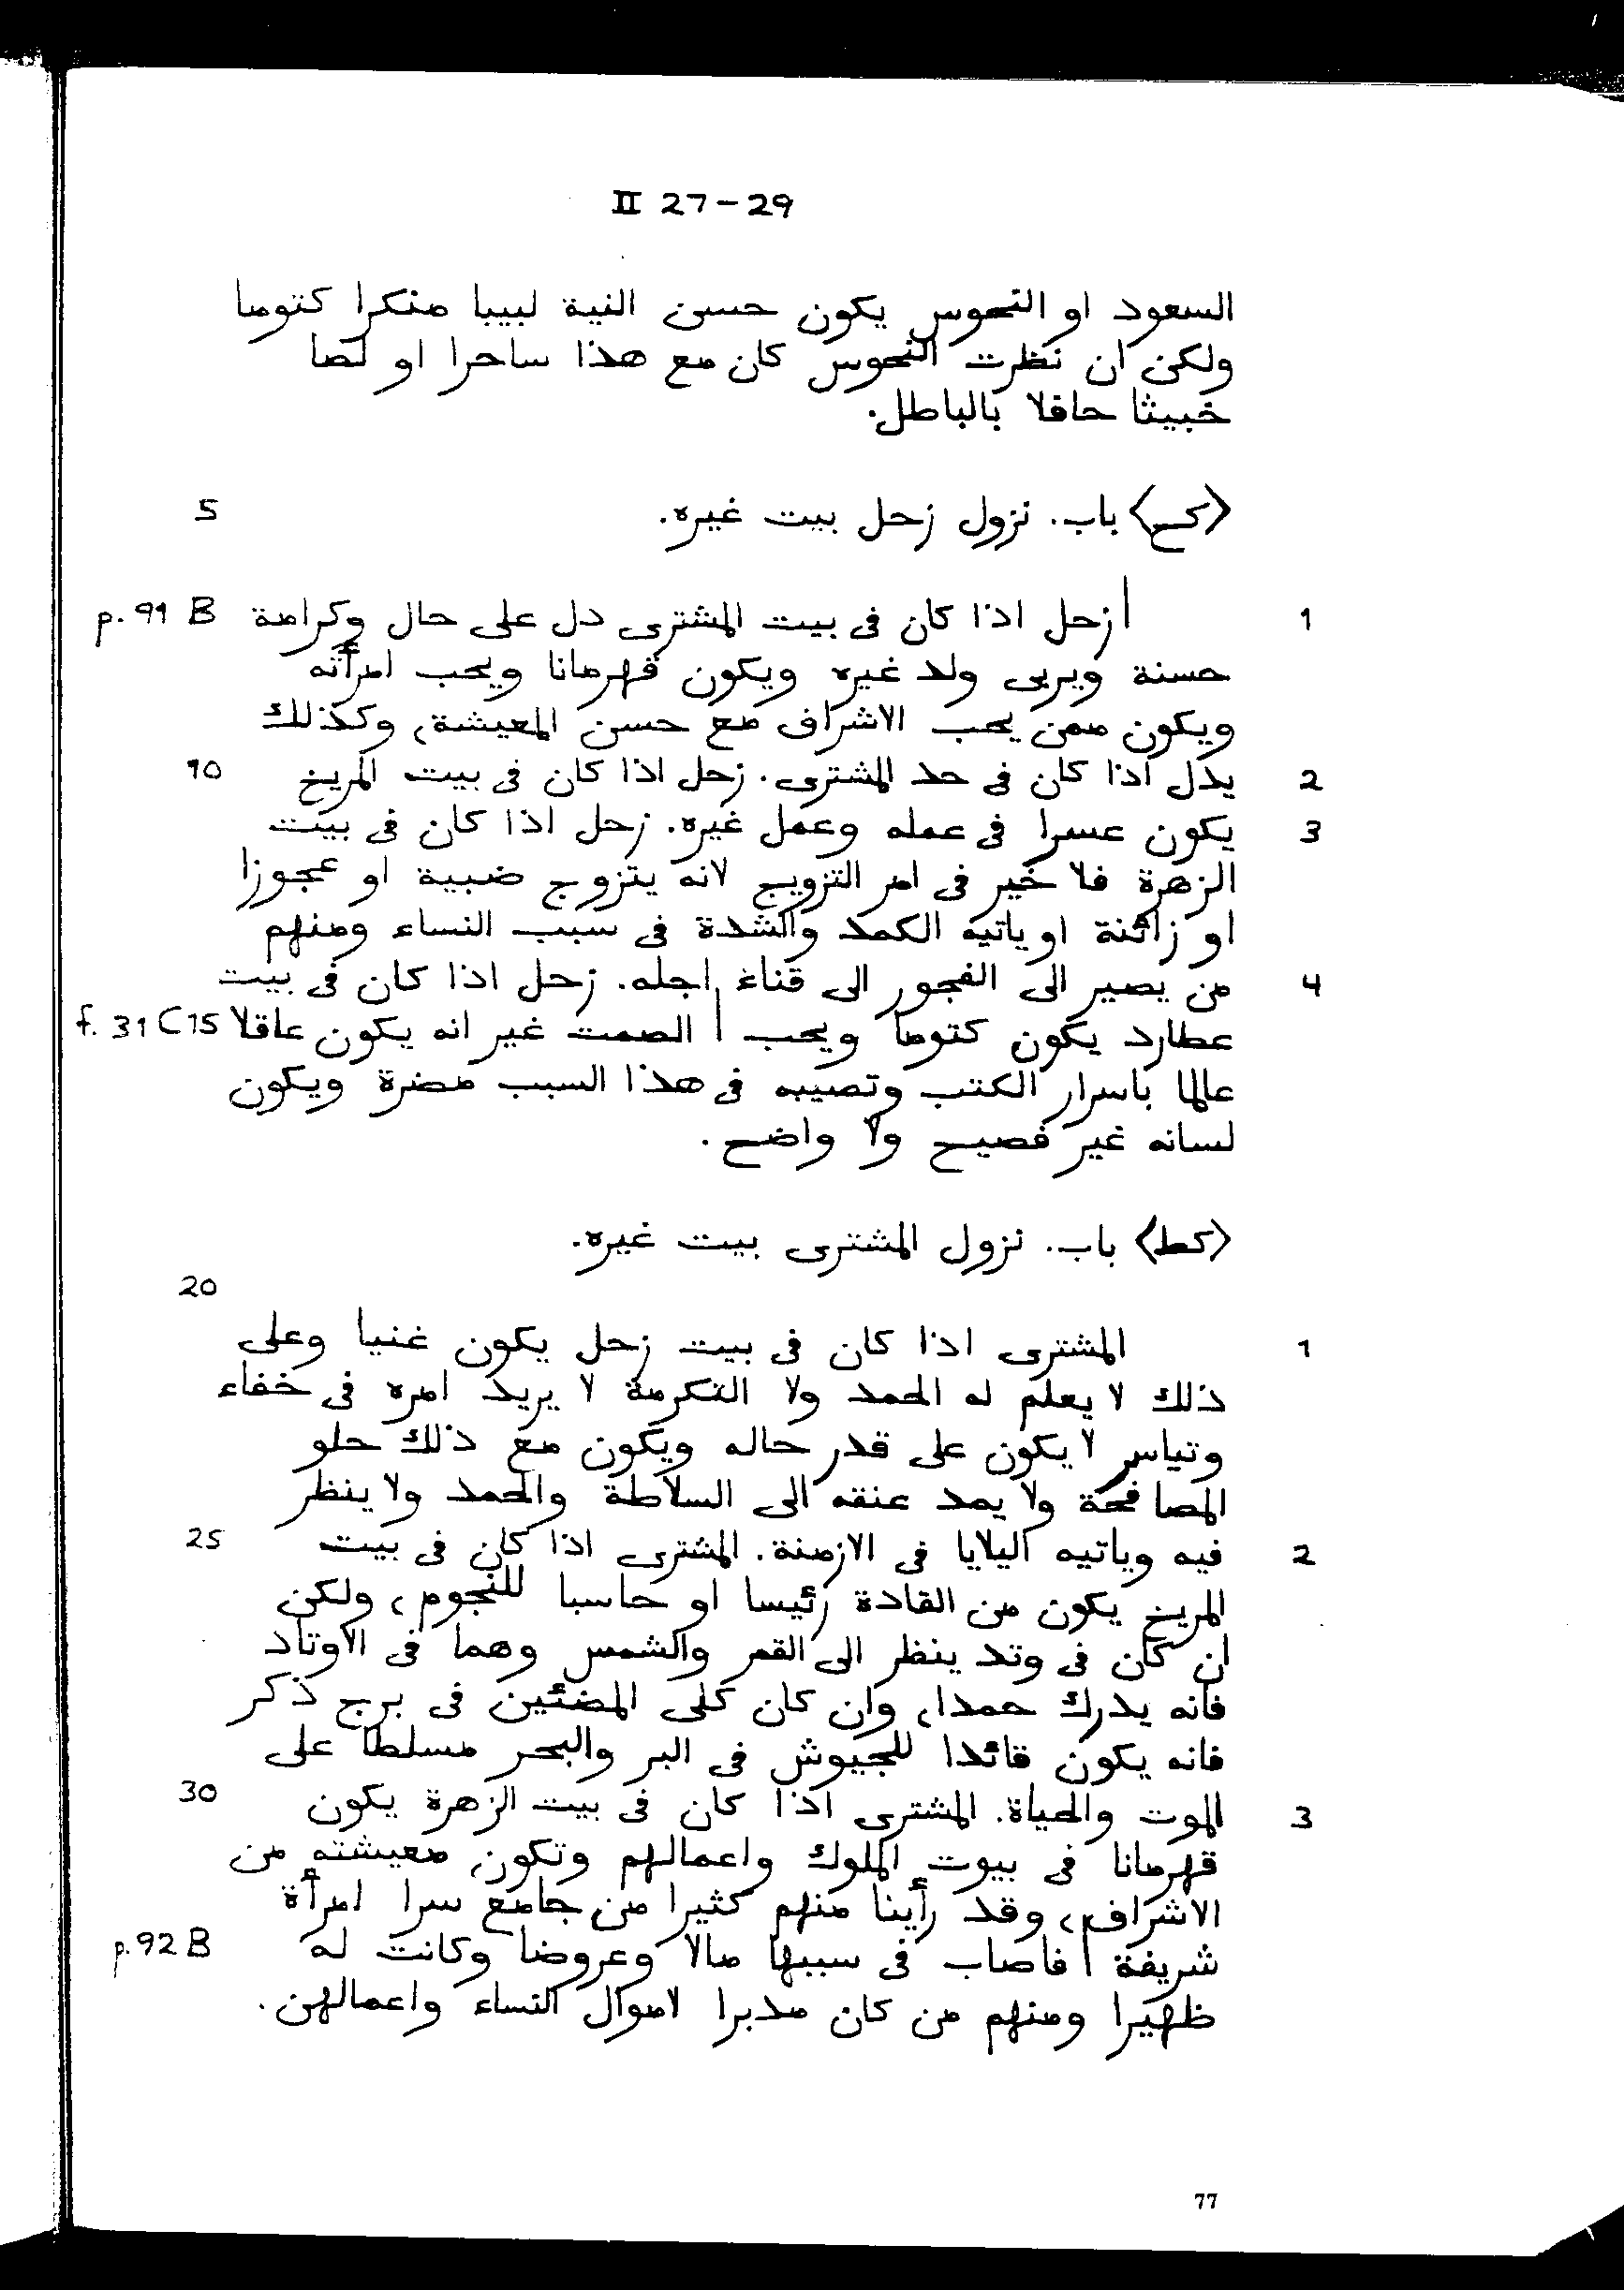 II 27-29
السعود او النحوس يكون حسن النية لبيبا منكرا كتوما
ولكن ان نظرت النحوس كان مع هذا ساحرا او لصا
خبيثا حافلا بالباطل.
5 〈كح〉 باب. نزول زحل بيت غيره.
1 | زحل اذا كان فى بيت المشترى دل على حال وكرامة p. 91 B
حسنة ويربى ولد غيره ويكون قهرمانا ويحب امرأته
ويكون ممن يحب الاشراف مع حسن المعيشة، وكذلك
2 يدل اذا كان فى حد المشترى. زحل اذا كان فى بيت المريخ 10
3 يكون عسرا فى عمله وعمل غيره. زحل اذا كان فى بيت
الزهرة فلا خير فى امر التزويج لانه يتزوج ضبية او عجوزا
او زائنة او ياتيه الكمد والشدة فى سبب النساء ومنهم
4 من يصير الى الفجور الى قناء اجله. زحل اذا كان فى بيت
عطارد يكون كتوما ويحب | الصمت غير انه يكون عاقلا f. 31 C 15
عالما باسرار الكتب وتصيبه فى هذا السبب مضرة ويكون
لسانه غير فصيح ولا واضح.
〈كط〉 باب. نزول المشترى بيت غيره.
20
1 المشترى اذا كان فى بيت زحل يكون غنيا وعلى
ذلك لا يعلم له الحمد ولا التكرمة لا يريد امره فى خفاء
وتياس لا يكون على قدر حاله ويكون مع ذلك حلو
المصافحة ولا يمد عنقه الى السلاطة والحمد ولا ينظر
2 فيه وياتيه اليلايا فى الازمنة. المشترى اذا كان فى بيت 25
المريخ يكون من القادة رئيسا او حاسبا للنجوم، ولكن
ان كان فى وتد ينظر الى القمر والشمس وهما فى الاوتاد
فانه يدرك حمدا، وان كان كلى المضئين فى برج ذكر
فانه يكون قائدا للجيوش فى البر والبحر مسلطا على
3 الموت والحياة. المشترى اذا كان فى بيت الزهرة يكون 30
قهرمانا فى بيوت الملوك واعمالهم وتكون معيشته من
الاشراف، وقد رأينا منهم كثيرا من جامع سرا امرأة
شريفة | فاصاب فى سببها مالا وعروضا وكانت له p. 92 B
ظهيرا ومنهم من كان مدبرا لاموال النساء واعمالهن.
77